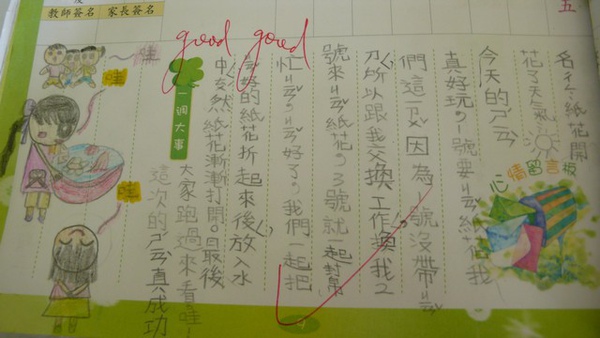 五
教師簽名
家長簽名
good good
紙花開
花了天氣
心情留言板
今天的
真好玩。1號要ㄐㄧㄢˇ紙花我
們這 因為1號沒帶ㄐㄧㄢˇ
刀所以跟我交換工作換我2
號來ㄐㄧㄢˇ紙花。3號就一起幫
忙ㄐㄧㄢˇㄐㄧㄢˇ好了。我們一起把
ㄐㄧㄢˇ好的紙花折起來後放入水
中突然紙花漸漸打開。最後
一週大事
大家跑過來看哇!
這次的 真成功
哇
哇
哇